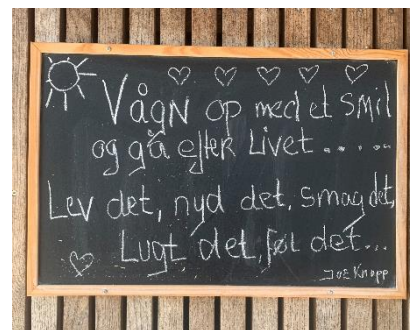 Vågn op med et smil
og gå efter Livet......
Lev det, nyd det, smag det,
Lugt det, føl det...
Joe Knapp